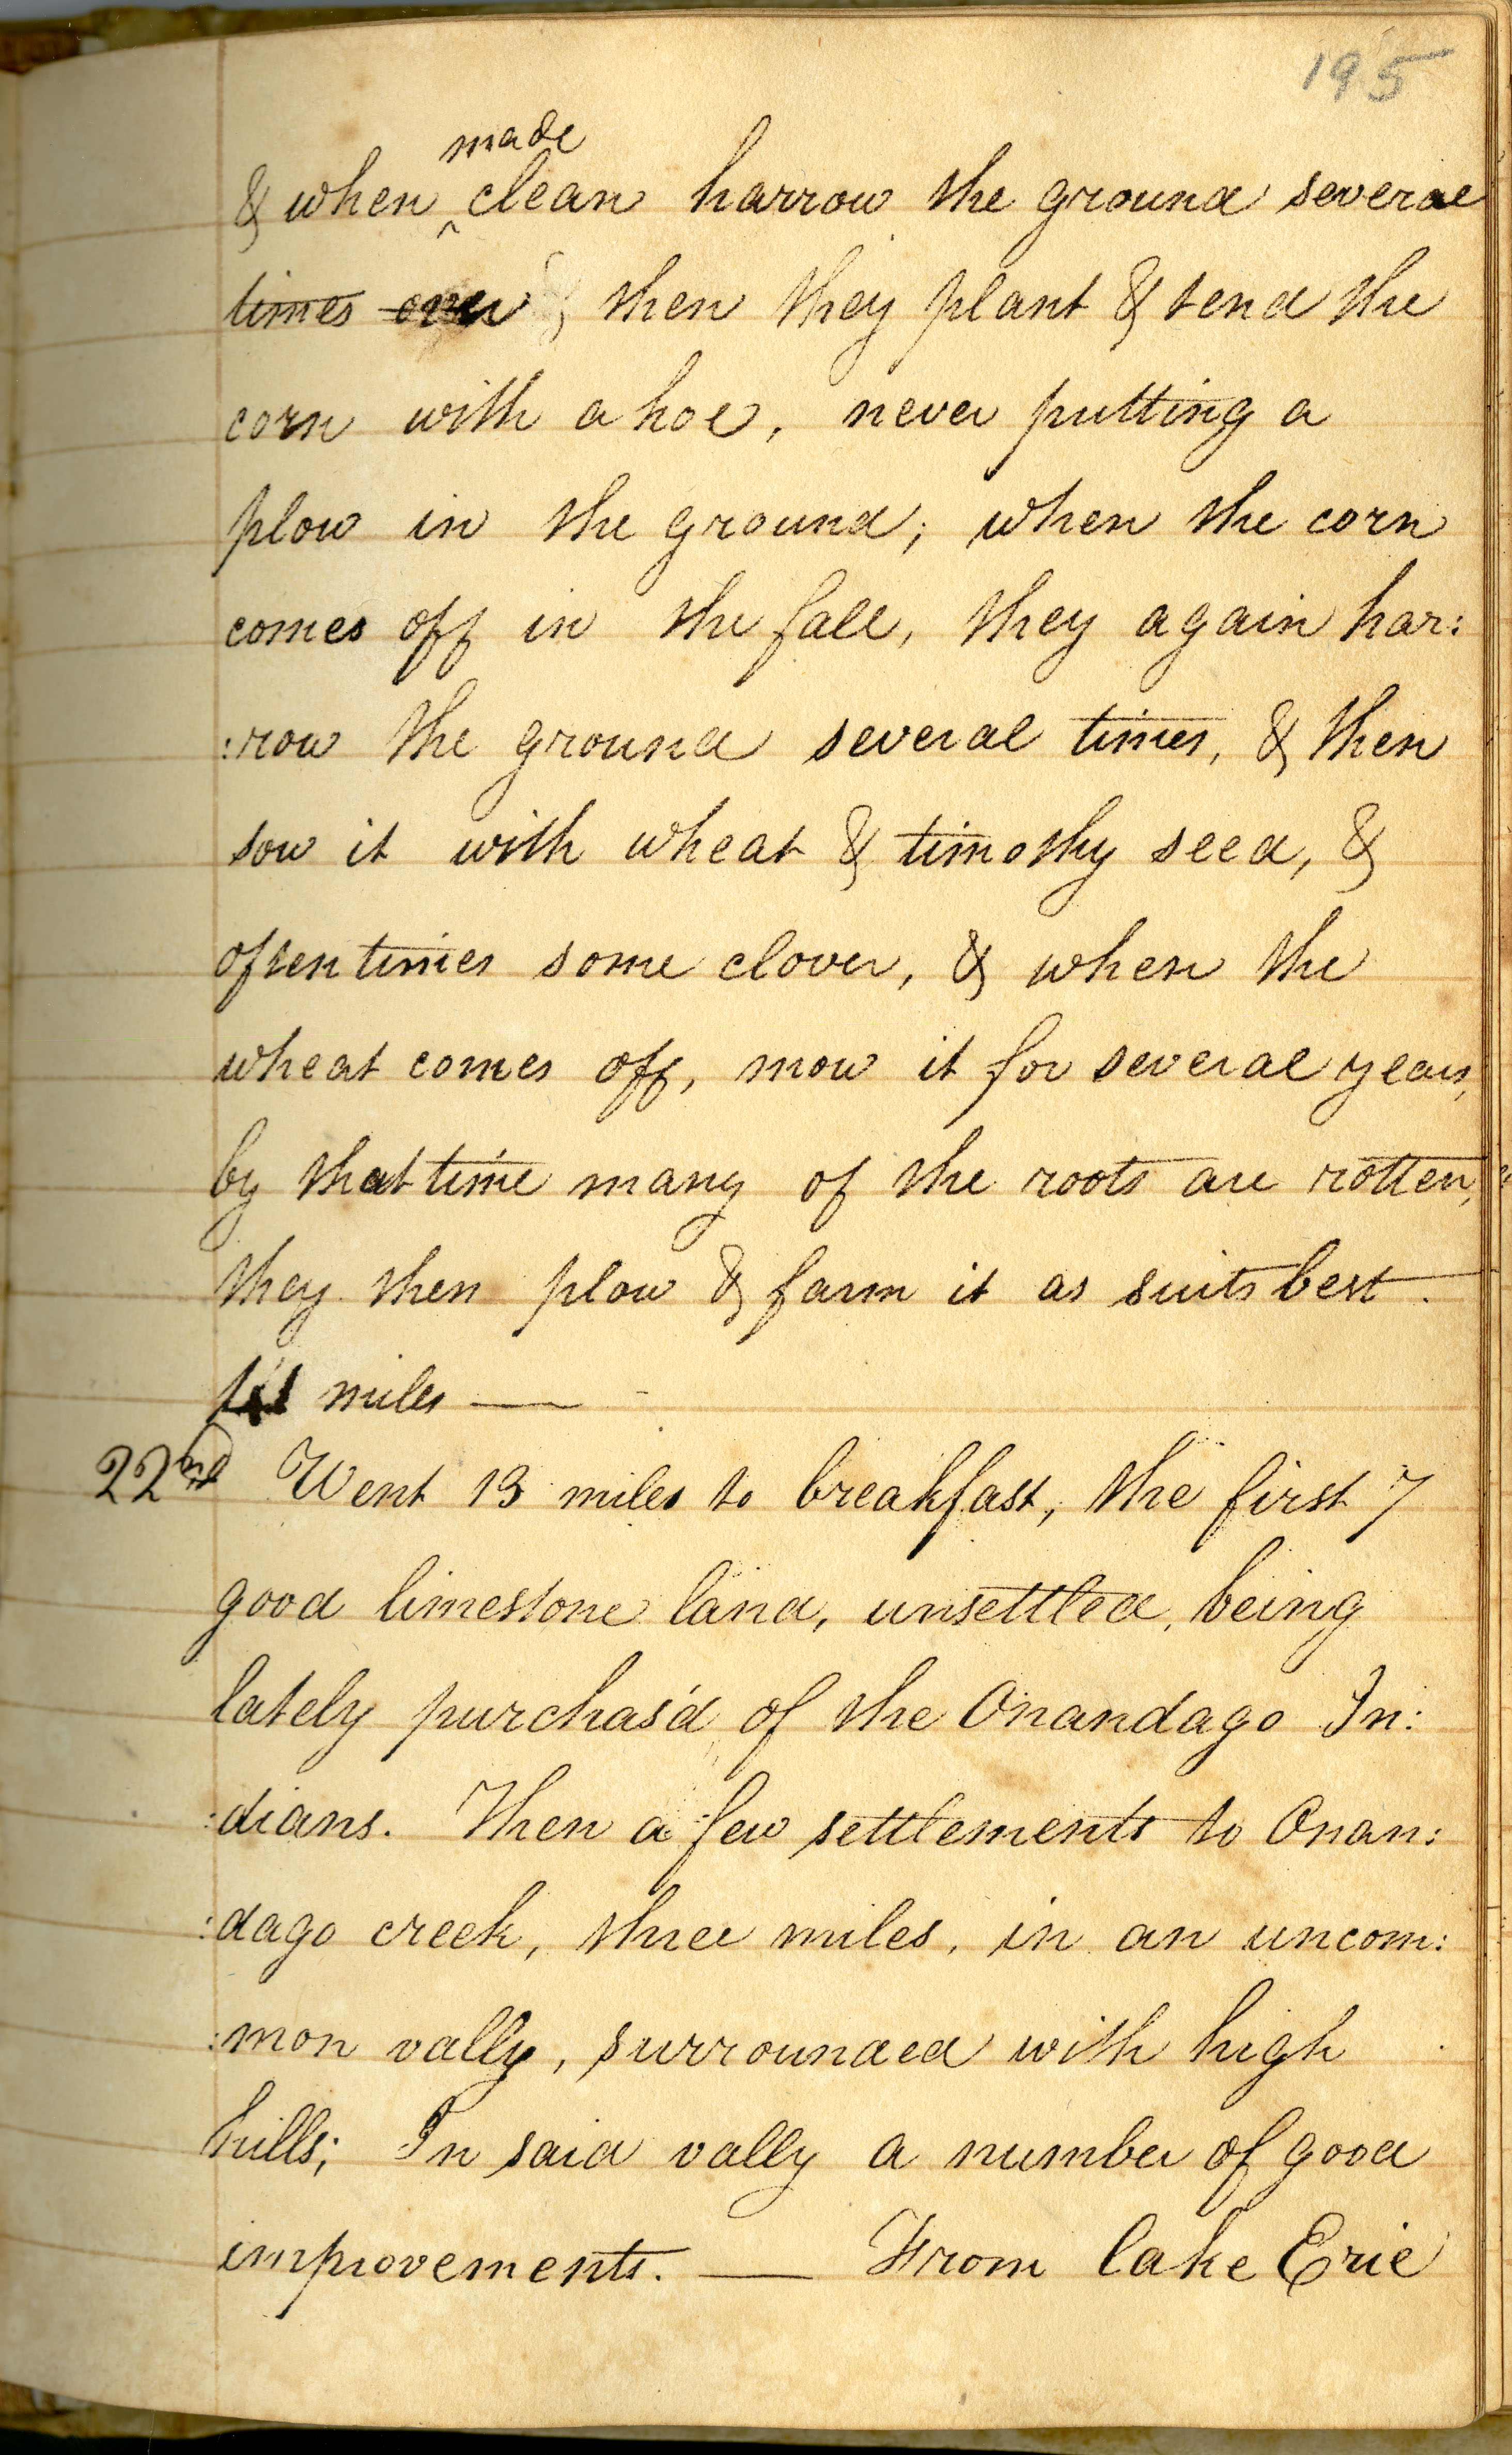 195
made
& when ^ clean harrow the ground several
times over, then they plant & tend the
corn with a hoe, never putting a
plow in the ground; when the corn
comes off in the fall, they again har:
:row the ground several times, & then
sow it with wheat & timothy seed, &
often times some clover, & when the
wheat comes off, mow it for several years,
by that time many of the roots are rotten,
they then plow & farm it as suits best.
miles —
22nd Went 13 miles to breakfast, the first 7
good limestone land, unsettled, being
lately purchas'd of the Onandago In:
:dians. Then a few settlements to Onan:
:dago creek, three miles, in an uncom:
:mon vally, surrounded with high
hills; In said vally a number of good
improvements. — From lake Erie